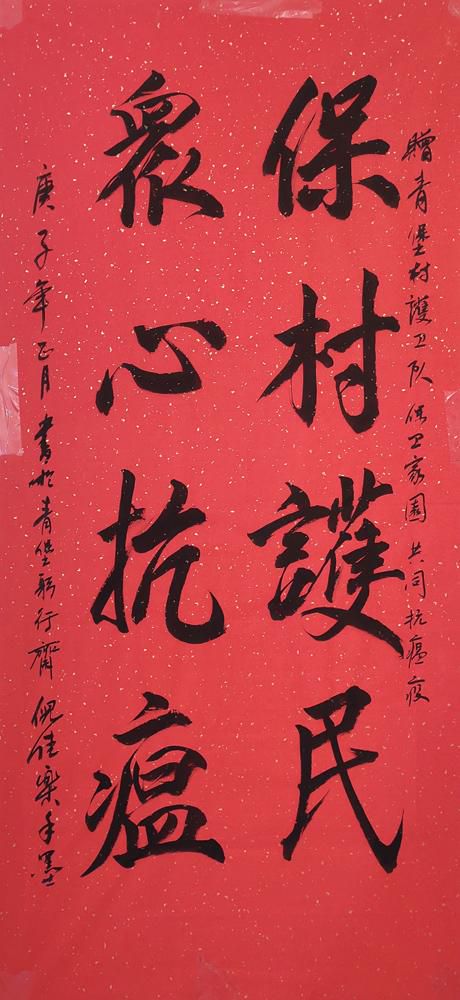 贈青堡村護卫队保卫家園共同抗瘟疫
保村護民
衆心抗瘟
庚子年正月書於青堡躬行齋倪佳樂手墨